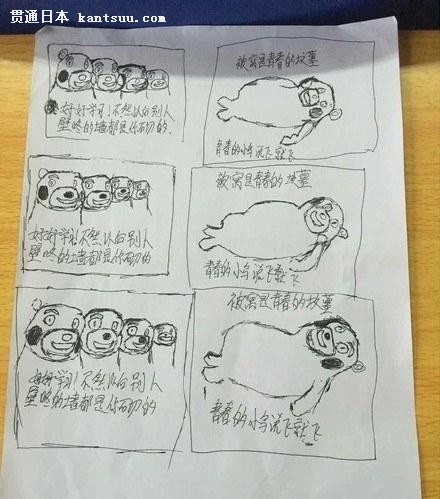 贯通日本 kantsuu.com
好好学习!不然以后别人
壁咚的墙都是你砌的.
被窝是青春的坟墓
青春的小鸟说飞就飞
好好学习!不然以后别人
壁咚的墙都是你砌的
被窝是青春的坟墓
青春的小鸟说飞就飞
好好学习!不然以后别人
壁咚的墙都是你砌的
被窝是青春的坟墓
青春的小鸟说飞就飞